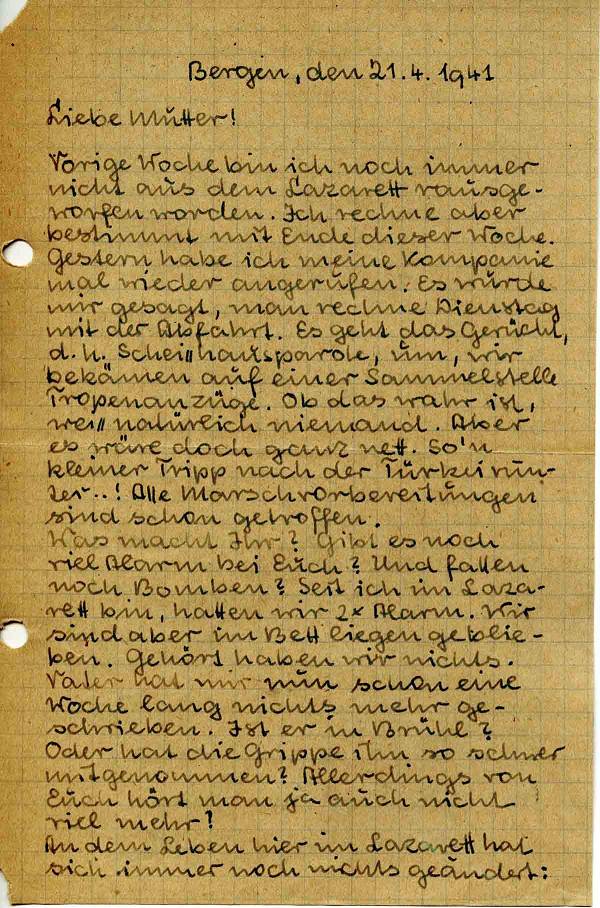 Bergen, den 21.4.1941
Liebe Mutter!
Vorige Woche bin ich noch immer
nicht aus dem Lazarett rausge-
worfen worden. Ich rechne aber
bestimmt mit Ende dieser Woche.
Gestern habe ich meine Kompanie
mal wieder angerufen. Es wurde
mir gesagt, man rechne Dienstag
mit der Abfahrt. Es geht das Gerücht,
d.h. Scheißhausparole, um, wir
bekämen auf einer Sammelstelle
Tropenanzüge. Ob das wahr ist,
weiß natürlich niemand. Aber
es wäre doch ganz nett. So'n
kleiner Tripp nach der Türkei run-
ter..! Alle Marschvorbereitungen
sind schon getroffen.
Was macht Ihr? Gibt es noch
viel Alarm bei Euch? Und fallen
noch Bomben? Seit ich im Laza-
rett bin, hatten wir 2x Alarm. Wir
sind aber im Bett liegen geblie-
ben. Gehört haben wir nichts.
Vater hat mir nun schon eine
Woche lang nichts mehr ge-
schrieben. Ist er in Brühl?
Oder hat die Grippe ihn so schwer
mitgenommen? Allerdings von
Euch hört man ja auch nicht
viel mehr!
An dem Leben hier im Lazarett hat
sich immer noch nichts geändert: